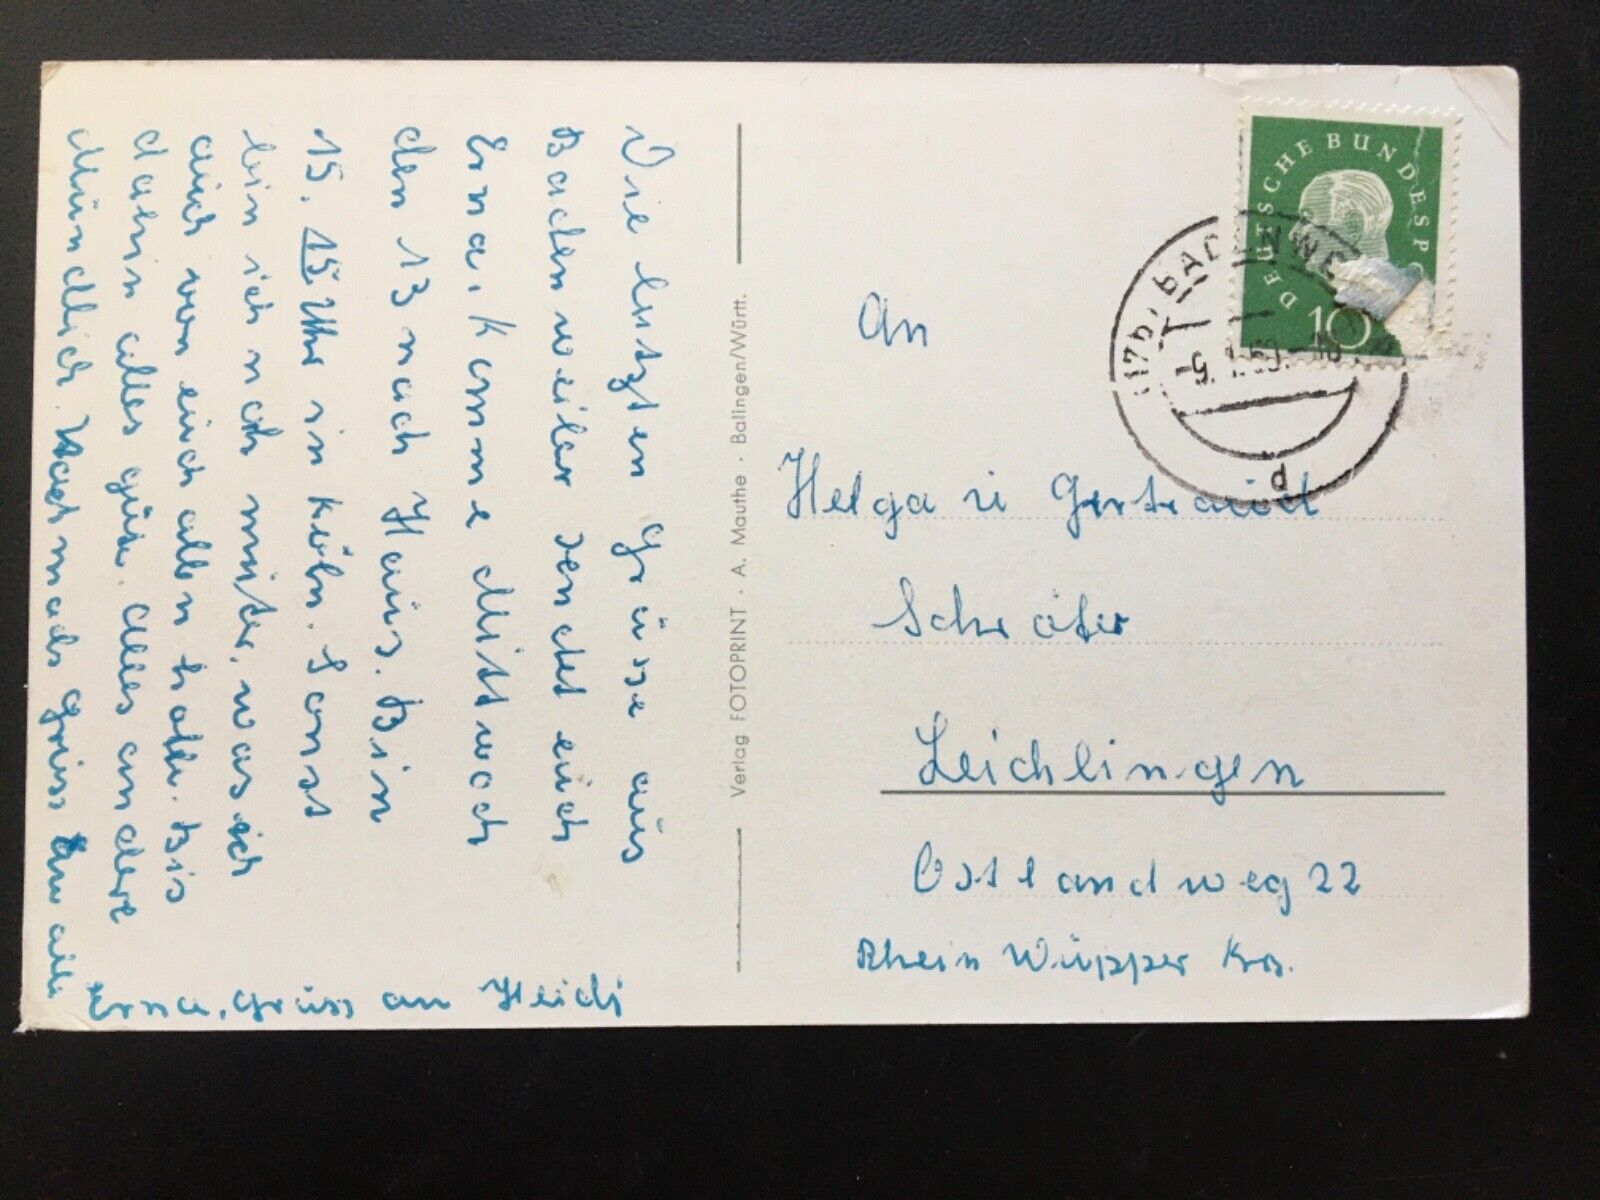 Die letzten Grüsse aus
Badenweiler sendet euch
Erna, Komme Mittwoch
den 13 nach Haus. Bin
15.15 Uhr in Köln. Sonst
bin ich noch munter, was ich
auch von euch allen hoffe. Bis
dahin alles gute. Alles andere
Mündlich. Nochmals Grüss an alle
Erna, Grüss an Heidi
Verlag FOTOPRINT · A. Mauthe · Balingen/Württ.
DEUTSCHE BUNDESP
10
BADENWE
-5. 1.60.-10
d
An
Helga u Gertraud
Schröter
Leichlingen
Ostlandweg 22
Rhein Wupper Krs.